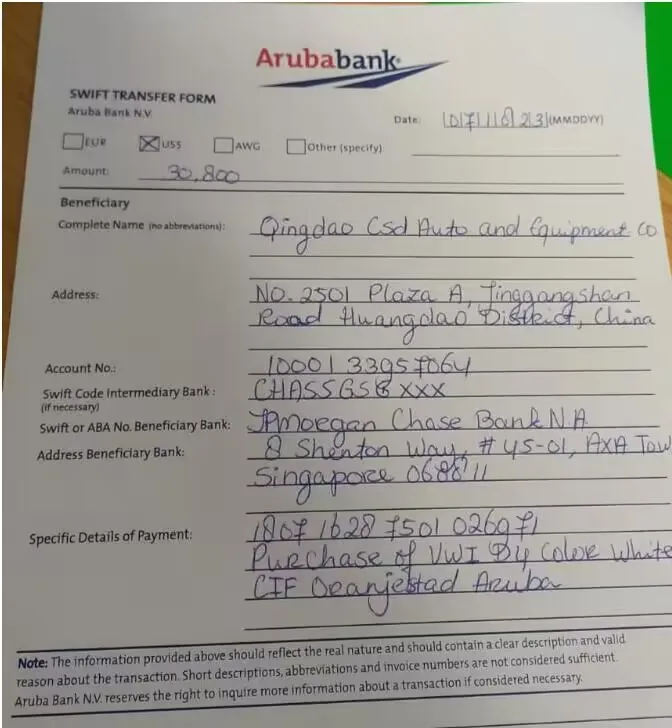 Arubabank
SWIFT TRANSFER FORM
Aruba Bank N.V.
Date: 0711823 (MMDDYY)
EUR US$ AWG Other (specify)
Amount: 30,800
Beneficiary
Complete Name (no abbreviations): Qingdao Csd Auto and Equipment Co
Address: NO. 2501 Plaza A, Jinggangshan
Road Huangdao District, China
Account No.: 10001 33957064
Swift Code Intermediary Bank: CHASSGSGXXX
(if necessary)
Swift or ABA No. Beneficiary Bank: JPMorgan Chase Bank N.A
Address Beneficiary Bank: 8 Shenton Way, #45-01, AXA Tow
Singapore 068811
Specific Details of Payment: 1807 1628 7501 026971
Purchase of VW ID4 Color White
CIF Oranjestad Aruba
Note: The information provided above should reflect the real nature and should contain a clear description and valid
reason about the transaction. Short descriptions, abbreviations and invoice numbers are not considered sufficient.
Aruba Bank N.V. reserves the right to inquire more information about a transaction if considered necessary.